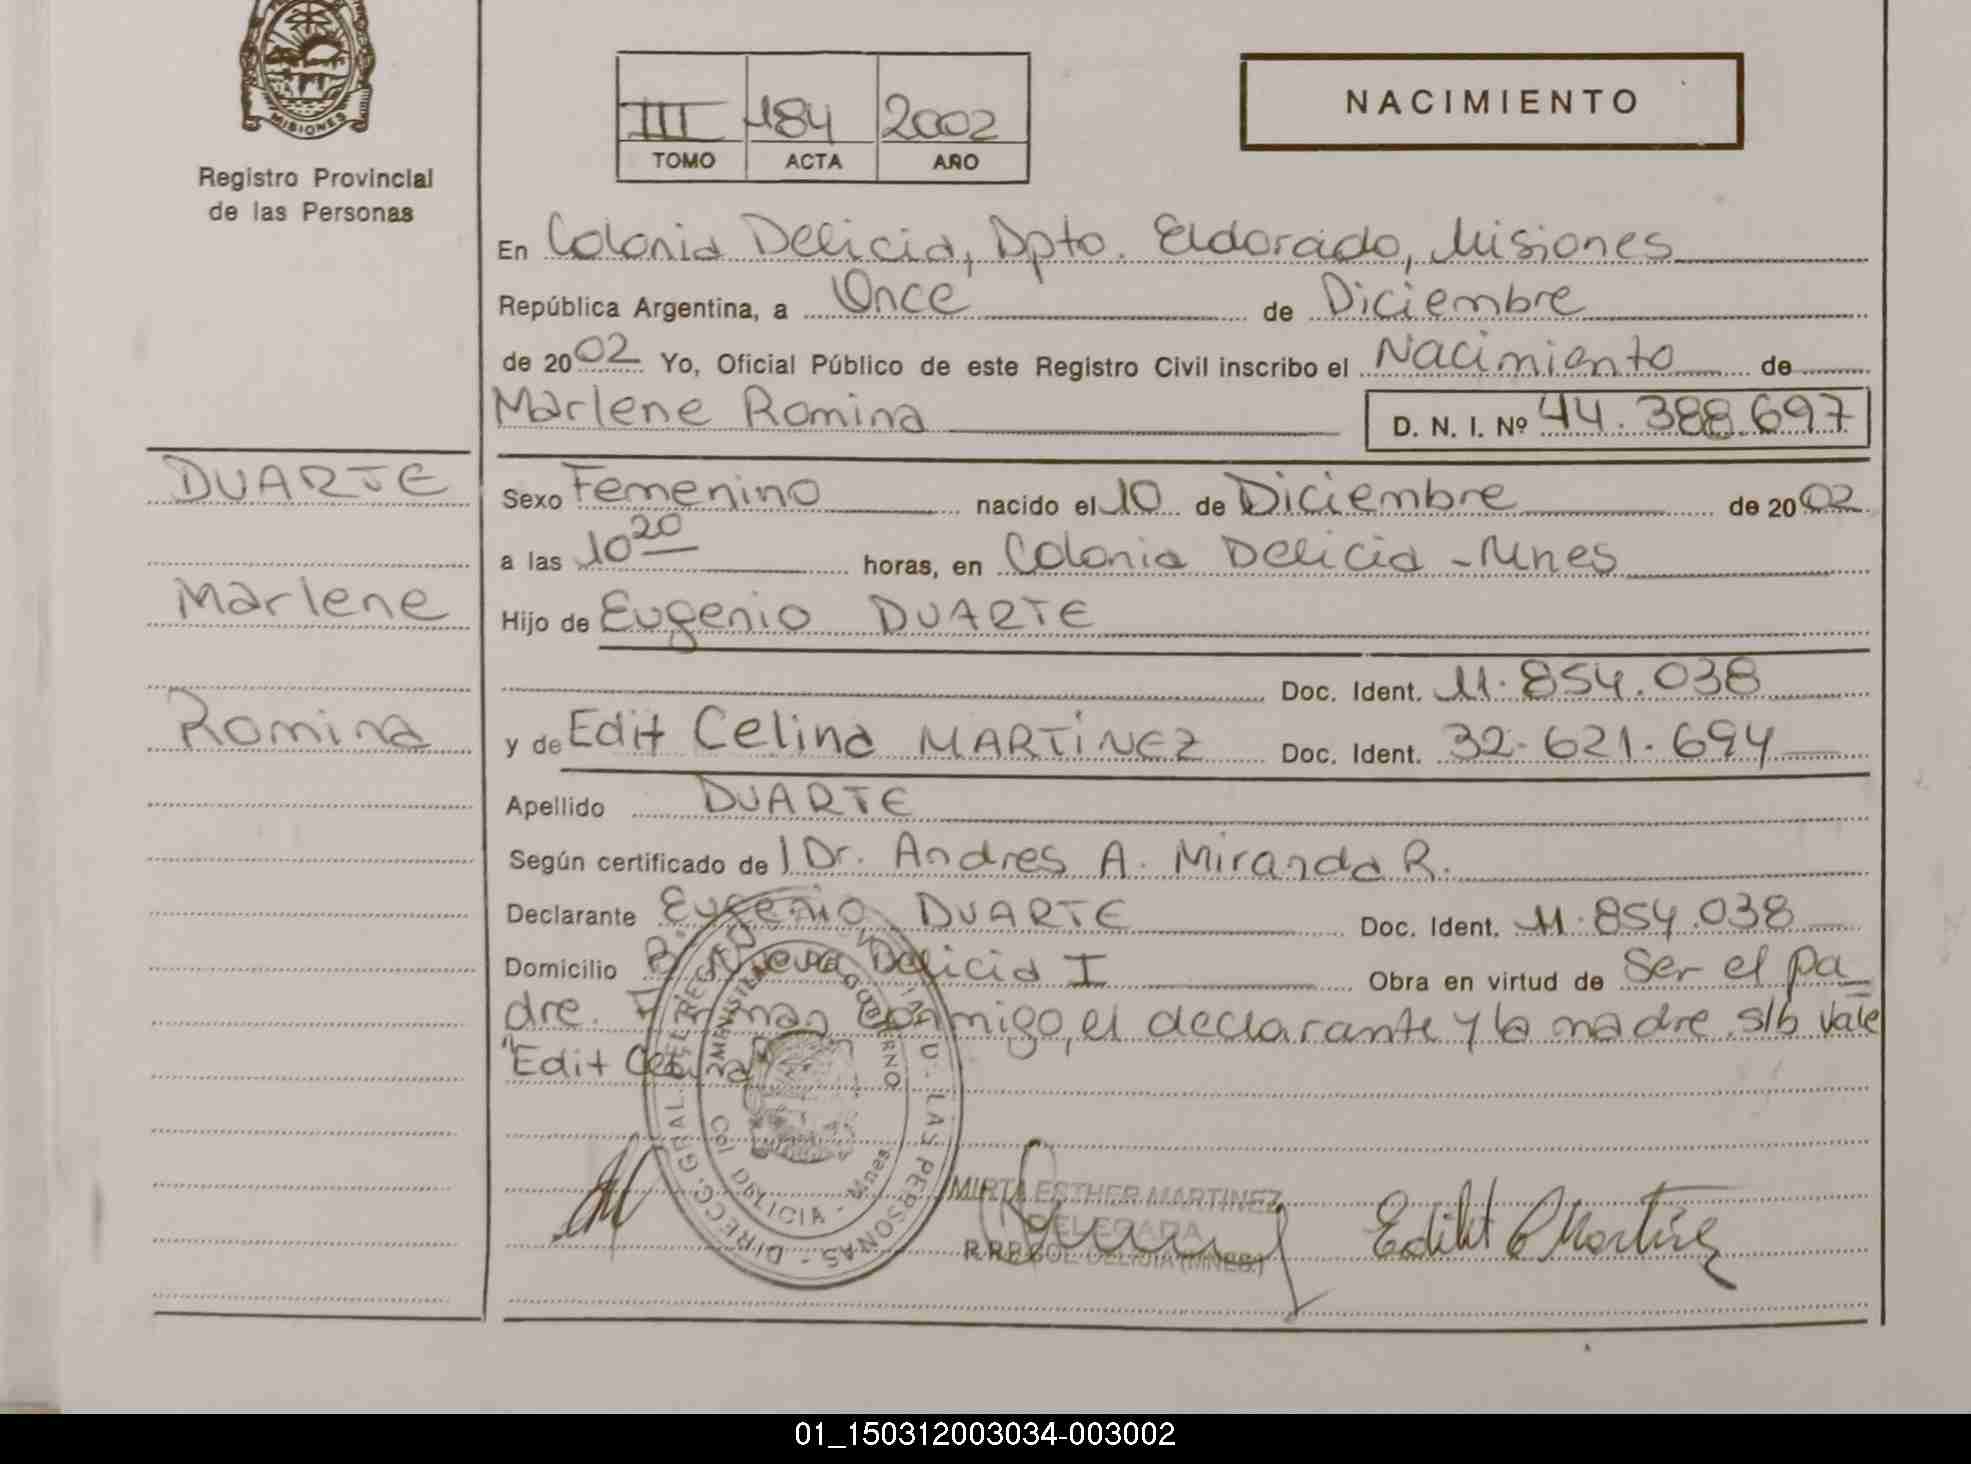 MISIONES
Registro Provincial
de las Personas
III 184 2002
TOMO ACTA AÑO
NACIMIENTO
En Colonia Delicia, Dpto. Eldorado, Misiones
República Argentina, a Once de Diciembre
de 2002 Yo, Oficial Público de este Registro Civil inscribo el Nacimiento de
Marlene Romina D. N. I. Nº 44.388.697
DUARTE
Marlene
Romina
Sexo Femenino nacido el 10 de Diciembre de 2002
a las 10 20 horas, en Colonia Delicia - Mnes
Hijo de Eugenio DUARTE
Doc. Ident. 11.854.038
y de Edit Celina MARTINEZ Doc. Ident. 32.621.694
Apellido DUARTE
Según certificado de Dr. Andres A. Miranda R.
Declarante Eugenio DUARTE Doc. Ident. 11.854.038
Domicilio B. Nueva Delicia I Obra en virtud de Ser el pa
dre. Firman conmigo, el declarante y la madre. s/b Vale
"Edit Celina"
DIRECC. GRAL. DEL REG. LAS PERSONAS
GOBIERNO
Col DELICIA - Mnes
MIRTA ESTHER MARTINEZ
DELEGADA
R.R.P. COL DELICIA (MNES.)
Ediht C Martinez
01_150312003034-003002